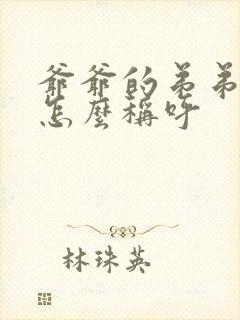 爺爺的弟弟
怎麼稱呼
林珠英